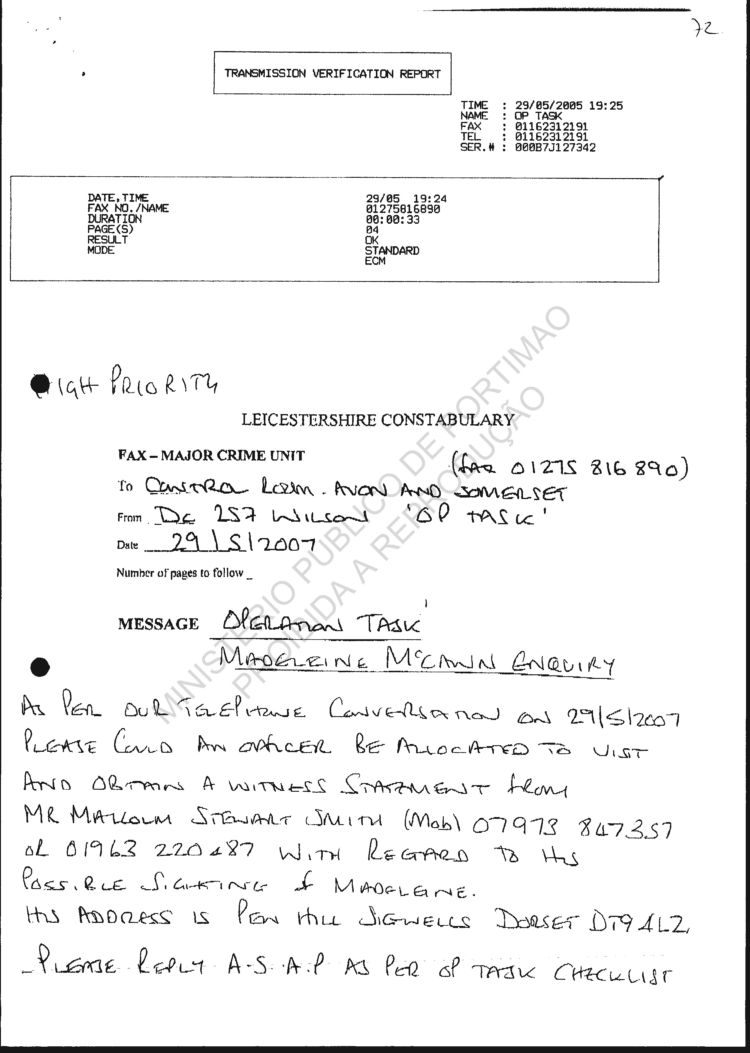 72
TRANSMISSION VERIFICATION REPORT
TIME : 29/05/2005 19:25
NAME : OP TASK
FAX : 01162312191
TEL : 01162312191
SER.# : 000B7J127342
DATE,TIME 29/05 19:24
FAX NO./NAME 01275816890
DURATION 00:00:33
PAGE(S) 04
RESULT OK
MODE STANDARD
ECM
HIGH PRIORITY
LEICESTERSHIRE CONSTABULARY
FAX – MAJOR CRIME UNIT
(FAX 01275 816 890)
To CONTROL ROOM. AVON AND SOMERSET
From DC 257 WILSON 'OP TASK'
Date 29/5/2007
Number of pages to follow _
MESSAGE OPERATION TASK'
MADELEINE McCANN ENQUIRY
MINISTÉRIO PÚBLICO DE PORTIMAO
PROIBIDA A REPRODUÇÃO
AS PER OUR TELEPHONE CONVERSATION ON 29/5/2007
PLEASE COULD AN OFFICER BE ALLOCATED TO VIST
AND OBTAIN A WITNESS STATMENT FROM
MR MALCOLM STEWART SMITH (Mob) 07973 847357
OR 01963 220487 WITH REGARD TO HIS
POSSIBLE SIGHTING OF MADELEINE.
HIS ADDRESS IS PEN HILL SIGWELLS DORSET DT9 4LZ,
PLEASE REPLY A.S.A.P AS PER OP TASK CHECKLIST